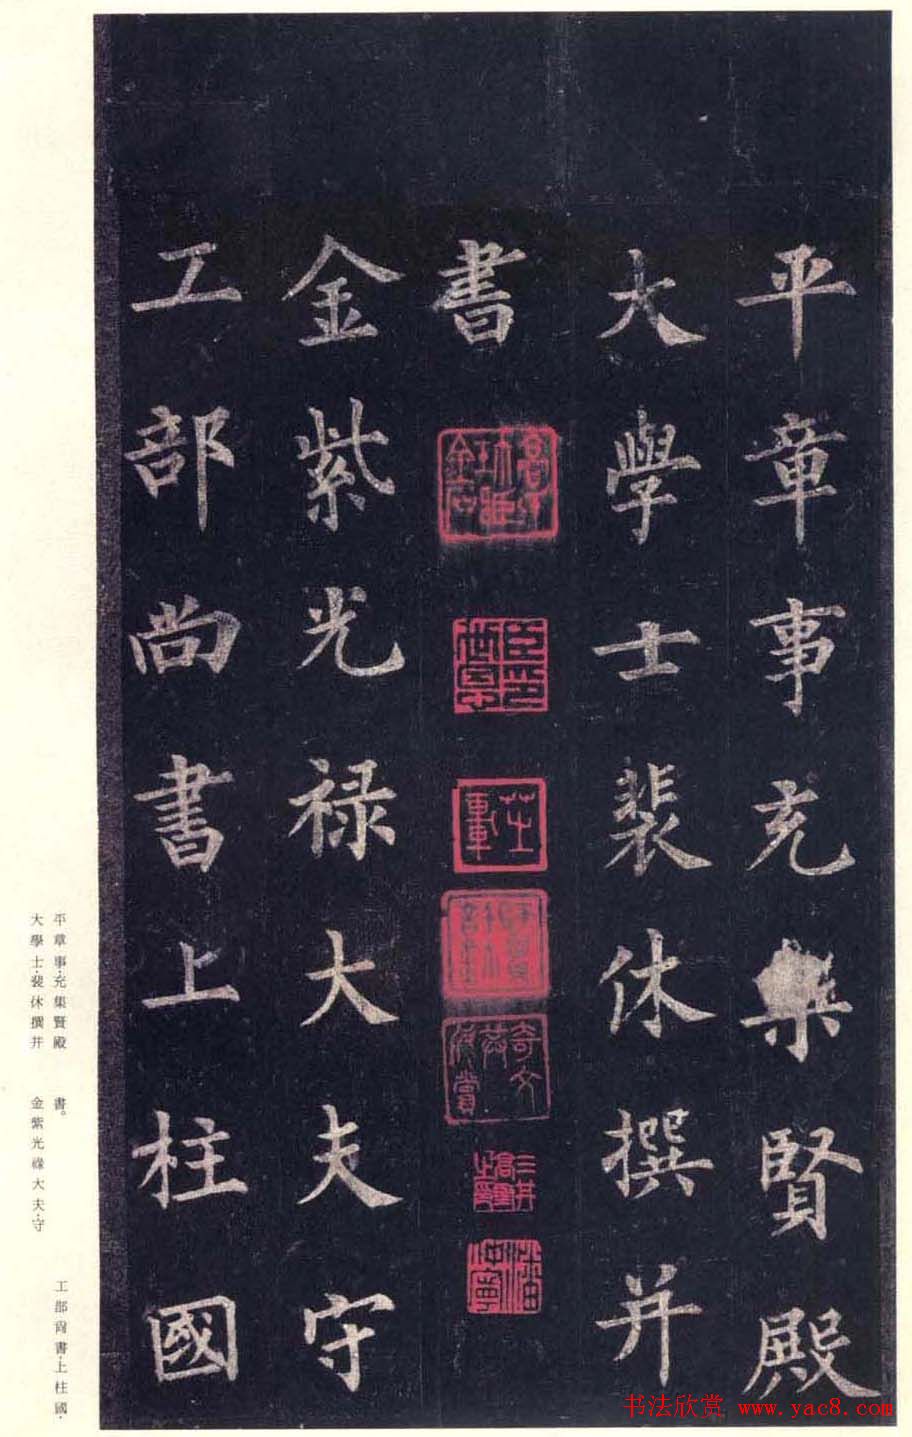 平章事充集賢殿
大學士裴休撰并
書
金紫光禄大夫守
工部尚書上柱國
平章事·充集賢殿
大學士·裴休撰并
書。
金紫光祿大夫·守
工部尚書·上柱國·
书法欣赏 www.yac8.com